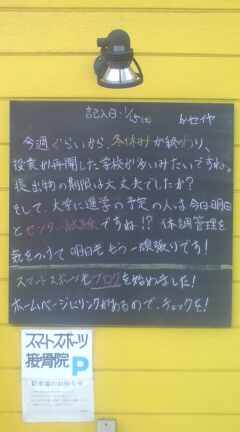 記入日:1/15(土) カセイヤ
今週ぐらいから、冬休みが終わり、
授業が再開した学校が多いみたいですね。
提出物の期限は大丈夫でしたか?
そして、大学に進学の予定の人は今日・明日
とセンター試験ですね!? 体調管理を
気をつけて明日ももう一頑張りです!
スマートスポーツもブログを始めました!
ホームページにリンクがあるので、チェックを!
スマートスポーツ
接骨院 P
駐車場のお知らせ